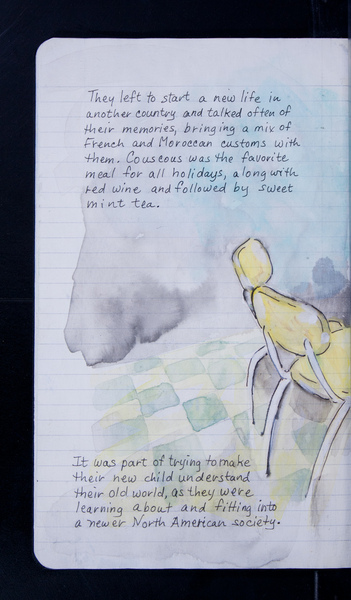 They left to start a new life in
another country and talked often of
their memories, bringing a mix of
French and Moroccan customs with
them. Couscous was the favorite
meal for all holidays, along with
red wine and followed by sweet
mint tea.
It was part of trying to make
their new child understand
their old world, as they were
learning about and fitting into
a newer North American society.